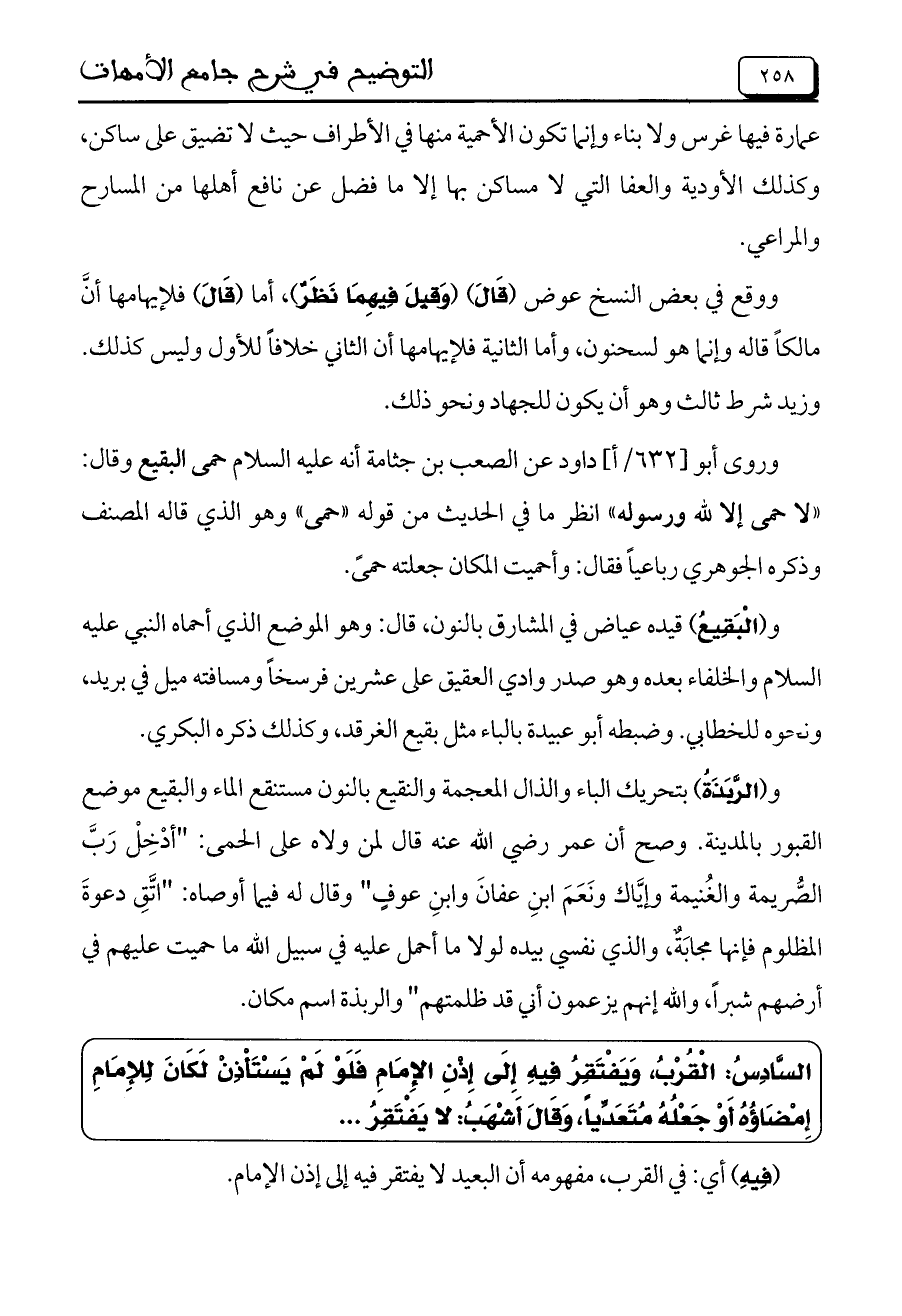 ٢٥٨
التوضيح في شرح جامع الأمهات
عمارة فيها غرس ولا بناء وإنما تكون الأحمية منها في الأطراف حيث لا تضيق على ساكن،
وكذلك الأودية والعفا التي لا مساكن بها إلا ما فضل عن نافع أهلها من المسارح
والمراعي.
ووقع في بعض النسخ عوض (قَالَ) (وَقيلَ فِيهِمَا نَظَرٌ)، أما (قَالَ) فلإيهامها أنَّ
مالكاً قاله وإنما هو لسحنون، وأما الثانية فلإيهامها أن الثاني خلافاً للأول وليس كذلك.
وزيد شرط ثالث وهو أن يكون للجهاد ونحو ذلك.
وروى أبو [٦٣٢/ أ] داود عن الصعب بن جثامة أنه عليه السلام حمى البقيع وقال:
«لا حمى إلا لله ورسوله» انظر ما في الحديث من قوله «حمى» وهو الذي قاله المصنف
وذكره الجوهري رباعياً فقال: وأحميت المكان جعلته حمىً.
و(الْبَقِيعُ) قيده عياض في المشارق بالنون، قال: وهو الموضع الذي أحماه النبي عليه
السلام والخلفاء بعده وهو صدر وادي العقيق على عشرين فرسخاً ومسافته ميل في بريد،
ونحوه للخطابي. وضبطه أبو عبيدة بالباء مثل بقيع الغرقد، وكذلك ذكره البكري.
و(الرَّبَذَةُ) بتحريك الباء والذال المعجمة والنقيع بالنون مستنقع الماء والبقيع موضع
القبور بالمدينة. وصح أن عمر رضي الله عنه قال لمن ولاه على الحمى: "أدْخِلْ رَبَّ
الصُّريمة والغُنيمة وإيَّاك ونَعَمَ ابنِ عفانَ وابنِ عوفٍ" وقال له فيما أوصاه: "اتَّقِ دعوةَ
المظلوم فإنها مجابَةٌ، والذي نفسي بيده لولا ما أحمل عليه في سبيل الله ما حميت عليهم في
أرضهم شبراً، والله إنهم يزعمون أني قد ظلمتهم" والربذة اسم مكان.
السَّادِسُ: الْقُرْبُ، وَيَفْتَقِرُ فِيهِ إِلَى إِذْنِ الإِمَامِ فَلَوْ لَمْ يَسْتَأْذِنْ لَكَانَ لِلإِمَامِ
إِمْضَاؤُهُ أَوْ جَعْلُهُ مُتَعَدِّياً، وَقَالَ أَشْهَبُ: لا يَفْتَقِرُ ...
(فِيهِ) أي: في القرب، مفهومه أن البعيد لا يفتقر فيه إلى إذن الإمام.